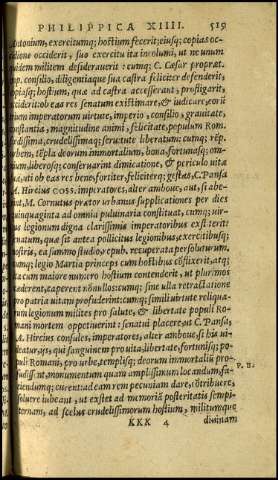 PHILIPPICA XIIII. 519
Antonium, exercitumq; hostium fecerit; eiusq; copias oc=
cidione occiderit, suo exercitu ita incolumi, ut ne unum
quidem militem desiderauerit: cumq; C. Cæsar proprat.
imp. consilio, diligentiaque sua castra feliciter defenderit,
copiasq; hostium, quæ ad castra accesserant, profligarit,
occiderit: ob eas res senatum existimare, & iudicare, eorū
trium imperatorum uirtute, imperio, consilio, grauitate,
constantia, magnitudine animi, felicitate, populum Rom.
fœdissima, crudelissimaq; seruitute liberatum: cumq; rēp.
urbem, tēpla deorum immortalium, bona, fortunasq; om=
nium, liberosq; conseruarint dimicatione, & periculo uitæ
suæ, uti ob eas res bene, fortiter, feliciterq; gestas, C. Pansa
A. Hircius coss. imperatores, alter ambo ue, aut, si abe=
runt, M. Cornutus prætor urbanus supplicationes per dies
quinquaginta ad omnia puluinaria constituat, cumq; uir=
tus legionum digna clarissimis imperatoribus exstiterit
senatum, quæ sit antea pollicitus legionibus, exercitibusq;
nostris, ea summo studio re pub. recuperata persoluturum,
cumq; legio Martia princeps cum hostibus cōflixerit, atq;
ita cum maiore numero hostium contenderit, ut plurimos
cæderent, caperent nōnullos: cumq; sine ulla retractatione
pro patria uitam profuderint: cumq; simili uirtute reliqua=
rum legionum milites pro salute, & libertate populi Ro=
mani mortem oppetiuerint: senatui placere, ut C. Pansa,
A. Hircius consules, imperatores, alter ambo ue, si his ui=
deatur, ijs, qui sanguinem pro uita, libertate, fortunisq; po=
puli Romani, pro urbe, templisq; deorum immortaliū pro=
fudissent, monumentum quam amplissimum locandum, fa=
ciendumq; curent: ad eam rem pecuniam dare, cōtribuere,
soluere iubeat, ut exstet ad memoriā posteritatis sempi=
ternam, ad scelus crudelissimorum hostium, militumque
P. II.
KKK 4 diuinam